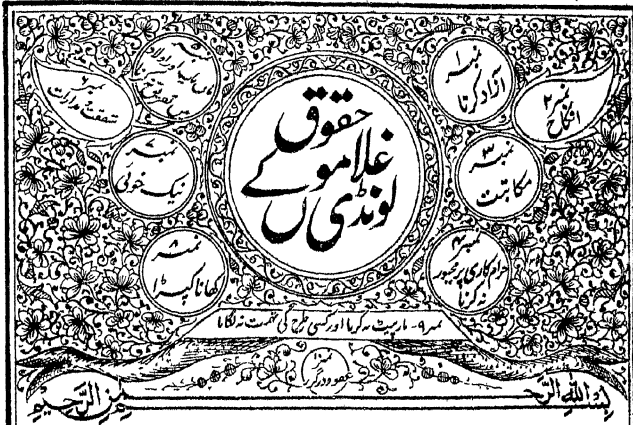 حقوق
غلاموں
لونڈی کے
نمبر ۱
آزاد کرنا
نمبر ۲
نکاح
نمبر ۳
مکاتبت
نمبر ۴
حرام کاری پر مجبور
نہ کرنا
نمبر ۶
شفقت و مدارات
نمبر ۷
نیک خوئی
نمبر ۸
کھانا کپڑا
نمبر ۹- مارپیٹ نہ کرنا اور کسی طرح کی تہمت نہ لگانا
نمبر ۱۰
عفو و درگزر
بسم اللہ الرحمن الرحیم